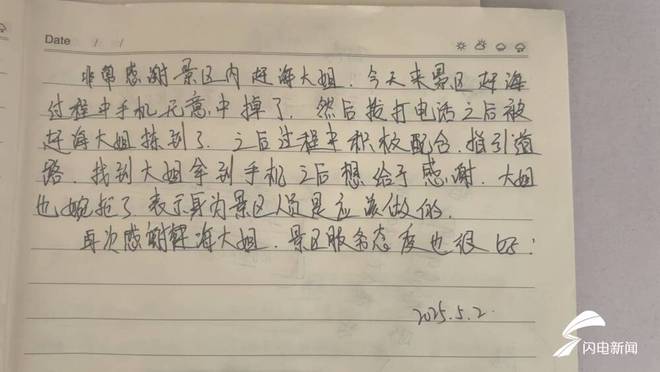 Date / /
非常感谢景区内赶海大姐.今天来景区赶海
过程中手机无意中掉了.然后拨打电话之后被
赶海大姐捡到了.之后过程中积极配合.指引道
路.找到大姐拿到手机之后想给予感谢.大姐
也婉拒了表示身为景区人员是应该做的.
再次感谢赶海大姐.景区服务态度也很好!
2025.5.2.
闪电新闻